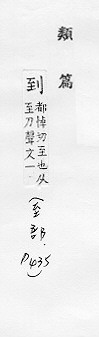 類篇
到
都悼切至也从
至刀聲文一
(至部.
P435)